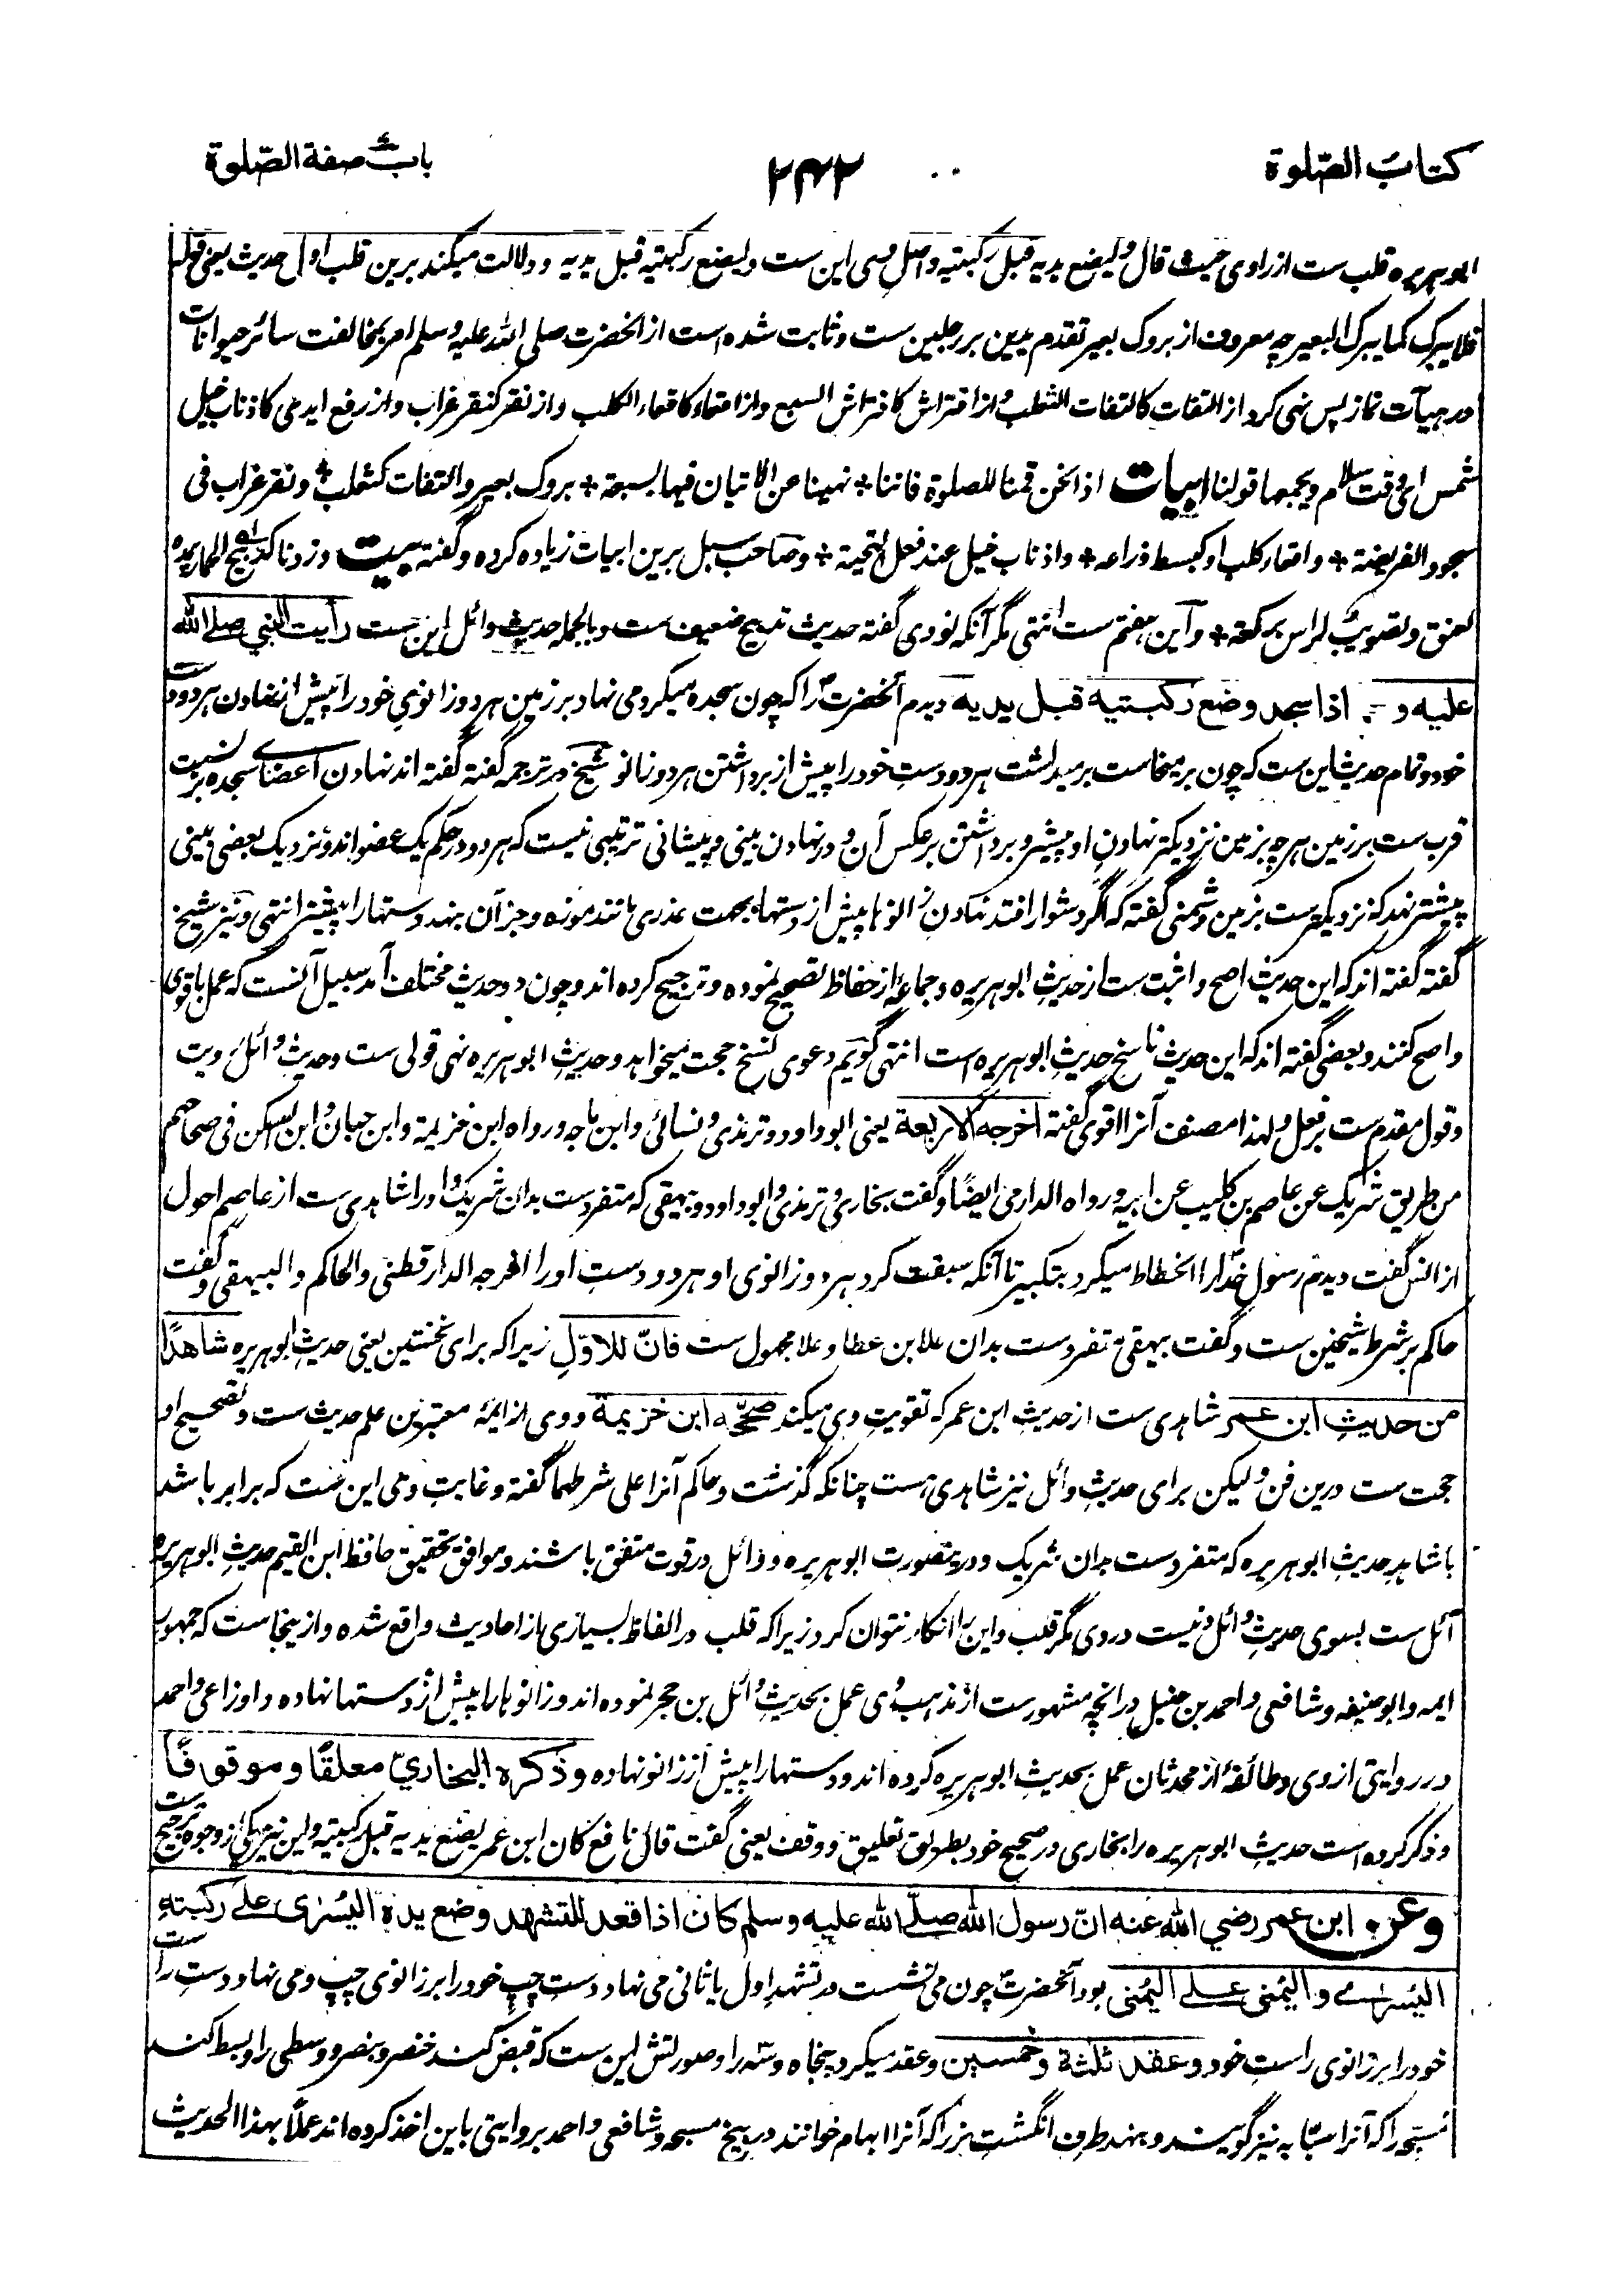 کتاب الصّلوة
۲۴۲
باب صفة الصّلوة
ابوہریرہ قلب ست از راوی حیث قال ولیضع یدیه قبل رکبتیه واصل وی این ست ولیضع رکبتیه قبل یدیه و دلالت میکند برین قلب اول حدیث یعنی قوله
فلا یبرک کما یبرک البعیر چه معروف از بروک بعیر تقدم یدین بر رجلین ست و ثابت شده است از آنحضرت صلی الله علیه وسلم امر بمخالفت سائر حیوانات
در هیآت نماز پس نهی کرد از التفات کالتفات الثعلب واز افتراش کافتراش السبع واز اقعاء کاقعاء الکلب واز نقر کنقر غراب واز رفع ایدی کاذناب خیل
شمس ای وقت سلام ویجمعها قولنا ابیات اذا نحن قمنا للصلوة فاننا + نهینا عن الاتیان فیها بسبعة + بروک بعیر والتفات کثعلب + ونقر غراب فی
سجود الفریضة + واقعاء کلب او کبسط ذراعه + واذناب خیل عند فعل التحیة + وصاحب سبل برین ابیات زیاده کرده وگفته بیت وزدنا کتدبیح الحمار بمده
لعنق وتصویب لراس برکعة + واین هفتم ست انتهی مگر آنکه نووی گفته حدیث تدبیح ضعیف ست وبالجمله حدیث وائل این ست رأیت النبی صلے الله
علیه و اذا سجد وضع رکبتیه قبل یدیه دیدم آنحضرت را که چون سجده میکرد می نهاد بر زمین هر دو زانوی خود را پیش از نهادن هر دو دست
خود و تمام حدیث این ست که چون برمیخاست برمیداشت هر دو دست خود را پیش از برداشتن هر دو زانو شیخ در ترجمه گفته گفته اند نهادن اعضای سجده بر نسبت
قرب ست بر زمین هر چه بزمین نزدیکتر نهادن او پیشتر و برداشتن بر عکس آن و در نهادن بینی و پیشانی ترتیبی نیست که هر دو در حکم یک عضو اند و نزدیک بعضی بینی
پیشتر نهد که نزدیکتر ست بزمین وشمنی گفته که اگر دشوار افتد نهادن زانوها پیش از دستها بجهت عذری مانند موزه وجز آن بنهد دستها را پیشتر انتهی ونیز شیخ
گفته گفته اند که این حدیث اصح و اثبت ست از حدیث ابوهریره وجماعۀ از حفاظ تصحیح نموده وترجیح کرده اند وچون دو حدیث مختلف آمد سبیل آنست که عمل باقوی
واصح کنند وبعضی گفته اند که این حدیث ناسخ حدیث ابوهریره است انتهی گویم دعوی نسخ حجت میخواهد وحدیث ابوهریره نهی قولی ست وحدیث وائل رویت
وقول مقدم ست بر فعل ولهذا مصنف آنرا اقوی گفته اخرجه الاربعة یعنی ابوداود وترمذی ونسائی وابن ماجه ورواه ابن خزیمة وابن حبان وابن السکن فی صحاحهم
من طریق شریک عن عاصم بن کلیب عن ابیه ورواه الدارمی ایضًا وگفت بخاری وترمذی وابوداود وبیهقی که متفرد ست بدان شریک واورا شاهدی ست از عاصم احول
از انس گفت دیدم رسول خدا را انحطاط میکرد بتکبیر تا آنکه سبقت کرد هر دو زانوی او هر دو دست اورا اخرجه الدارقطنی والحاکم والبیهقی وگفت
حاکم بر شرط شیخین ست وگفت بیهقی تفرد ست بدان علا بن عطا وعلا مجهول ست فانّ للاوّل زیرا که برای نخستین یعنی حدیث ابوهریره شاهدًا
من حدیث ابن عمر شاهدی ست از حدیث ابن عمر که تقویت وی میکند صحّحه ابن خزیمة ووی از ایمۀ معتبرین علم حدیث ست وتصحیح او
حجت ست درین فن ولیکن برای حدیث وائل نیز شاهدی ست چنانکه گذشت وحاکم آنرا علی شرطهما گفته وغایت وی این ست که برابر باشد
با شاهد حدیث ابوهریره که متفرد ست بدان شریک ودرینصورت ابوهریره ووائل در قوت متفق باشند وموافق تحقیق حافظ ابن القیم حدیث ابوهریره
آئل ست بسوی حدیث وائل ونیست دروی مگر قلب واین را انکار نتوان کرد زیرا که قلب در الفاظ بسیاری از احادیث واقع شده وازینجاست که جمهور
ایمه وابوحنیفه وشافعی واحمد بن حنبل در آنچه مشهور ست از مذهب وی عمل بحدیث وائل بن حجر نموده اند وزانوها را پیش از دستها نهاده واوزاعی واحمد
در روایتی از وی وطائفۀ از محدثان عمل بحدیث ابوهریره کرده اند ودستها را پیش از زانو نهاده وذکره البخاریّ معلقًا وموقوفًا
وذکر کرده است حدیث ابوهریره را بخاری در صحیح خود بطریق تعلیق ووقف یعنی گفت قال نافع کان ابن عمر یضع یدیه قبل رکبتیه واین نیز یکی از وجوه ترجیح ست
وعن ابن عمر رضي الله عنه انّ رسول الله صلّے الله علیه وسلم کان اذا قعد للتشهد وضع یدہ الیسْرٰی علے رکبتهِ
الیسْرٰے والیمْنی علے الیمْنی بود آنحضرت چون می نشست در تشهد اول یا ثانی می نهاد دست چپ خود را بر زانوی چپ ومی نهاد دست راست
خود را بر زانوی راست خود وعقد ثلثة وخمسین وعقد میکرد پنجاه وسه را وصورتش این ست که قبض کند خنصر وبنصر ووسطی را وبسط کند
مُسَبّحه را که آنرا سبّابه نیز گویند وبنهد طرف انگشت نر را که آنرا ابهام خوانند در بیخ مسبحه وشافعی واحمد بروایتی باین اخذ کرده اند عملًا بهذا الحدیث